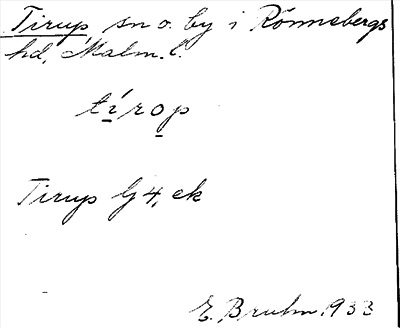 Tirup, sn o. by i Rönnebergs
hd, Malm. l.
tírop
Tirup G 4, ek
E. Bruhn. 1933